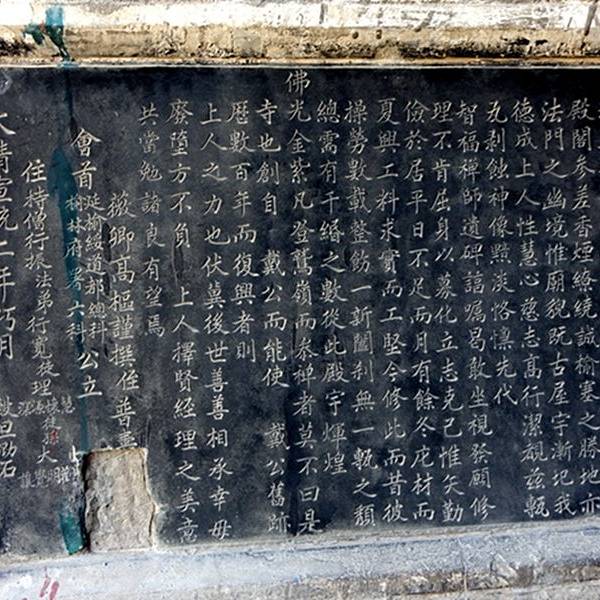 殿閣參差香煙繚繞誠榆塞之勝地亦
法門之幽境惟廟貌既古屋宇漸圮我
德成上人性慧心慈志高行潔覩茲甎
瓦剥蝕神像黯淡恪慎先代
智福禪師遺碑諳囑曷敢坐視發願修
理不肯屈身以募化立志克己惟矢勤
儉於居平日不足而月有餘冬庀材而
夏興工料求實而工堅今修此而昔彼
操勞數載整飭一新闔刹無一甎之頽
總需有千緡之數從此殿宇輝煌
佛光金紫凡登鷲嶺而參禪者莫不曰是
寺也創自 戴公而能使 戴公舊跡
歷數百年而復興者則
上人之力也伏冀後世善善相承幸毋
廢墮方不負 上人擇賢經理之美意
共當勉諸良有望焉
敬卿高樞謹撰 普
會首 延榆綏道部總科 榆林府署六科 公立
住持僧行振法弟行寬徒理
大清宣統二年